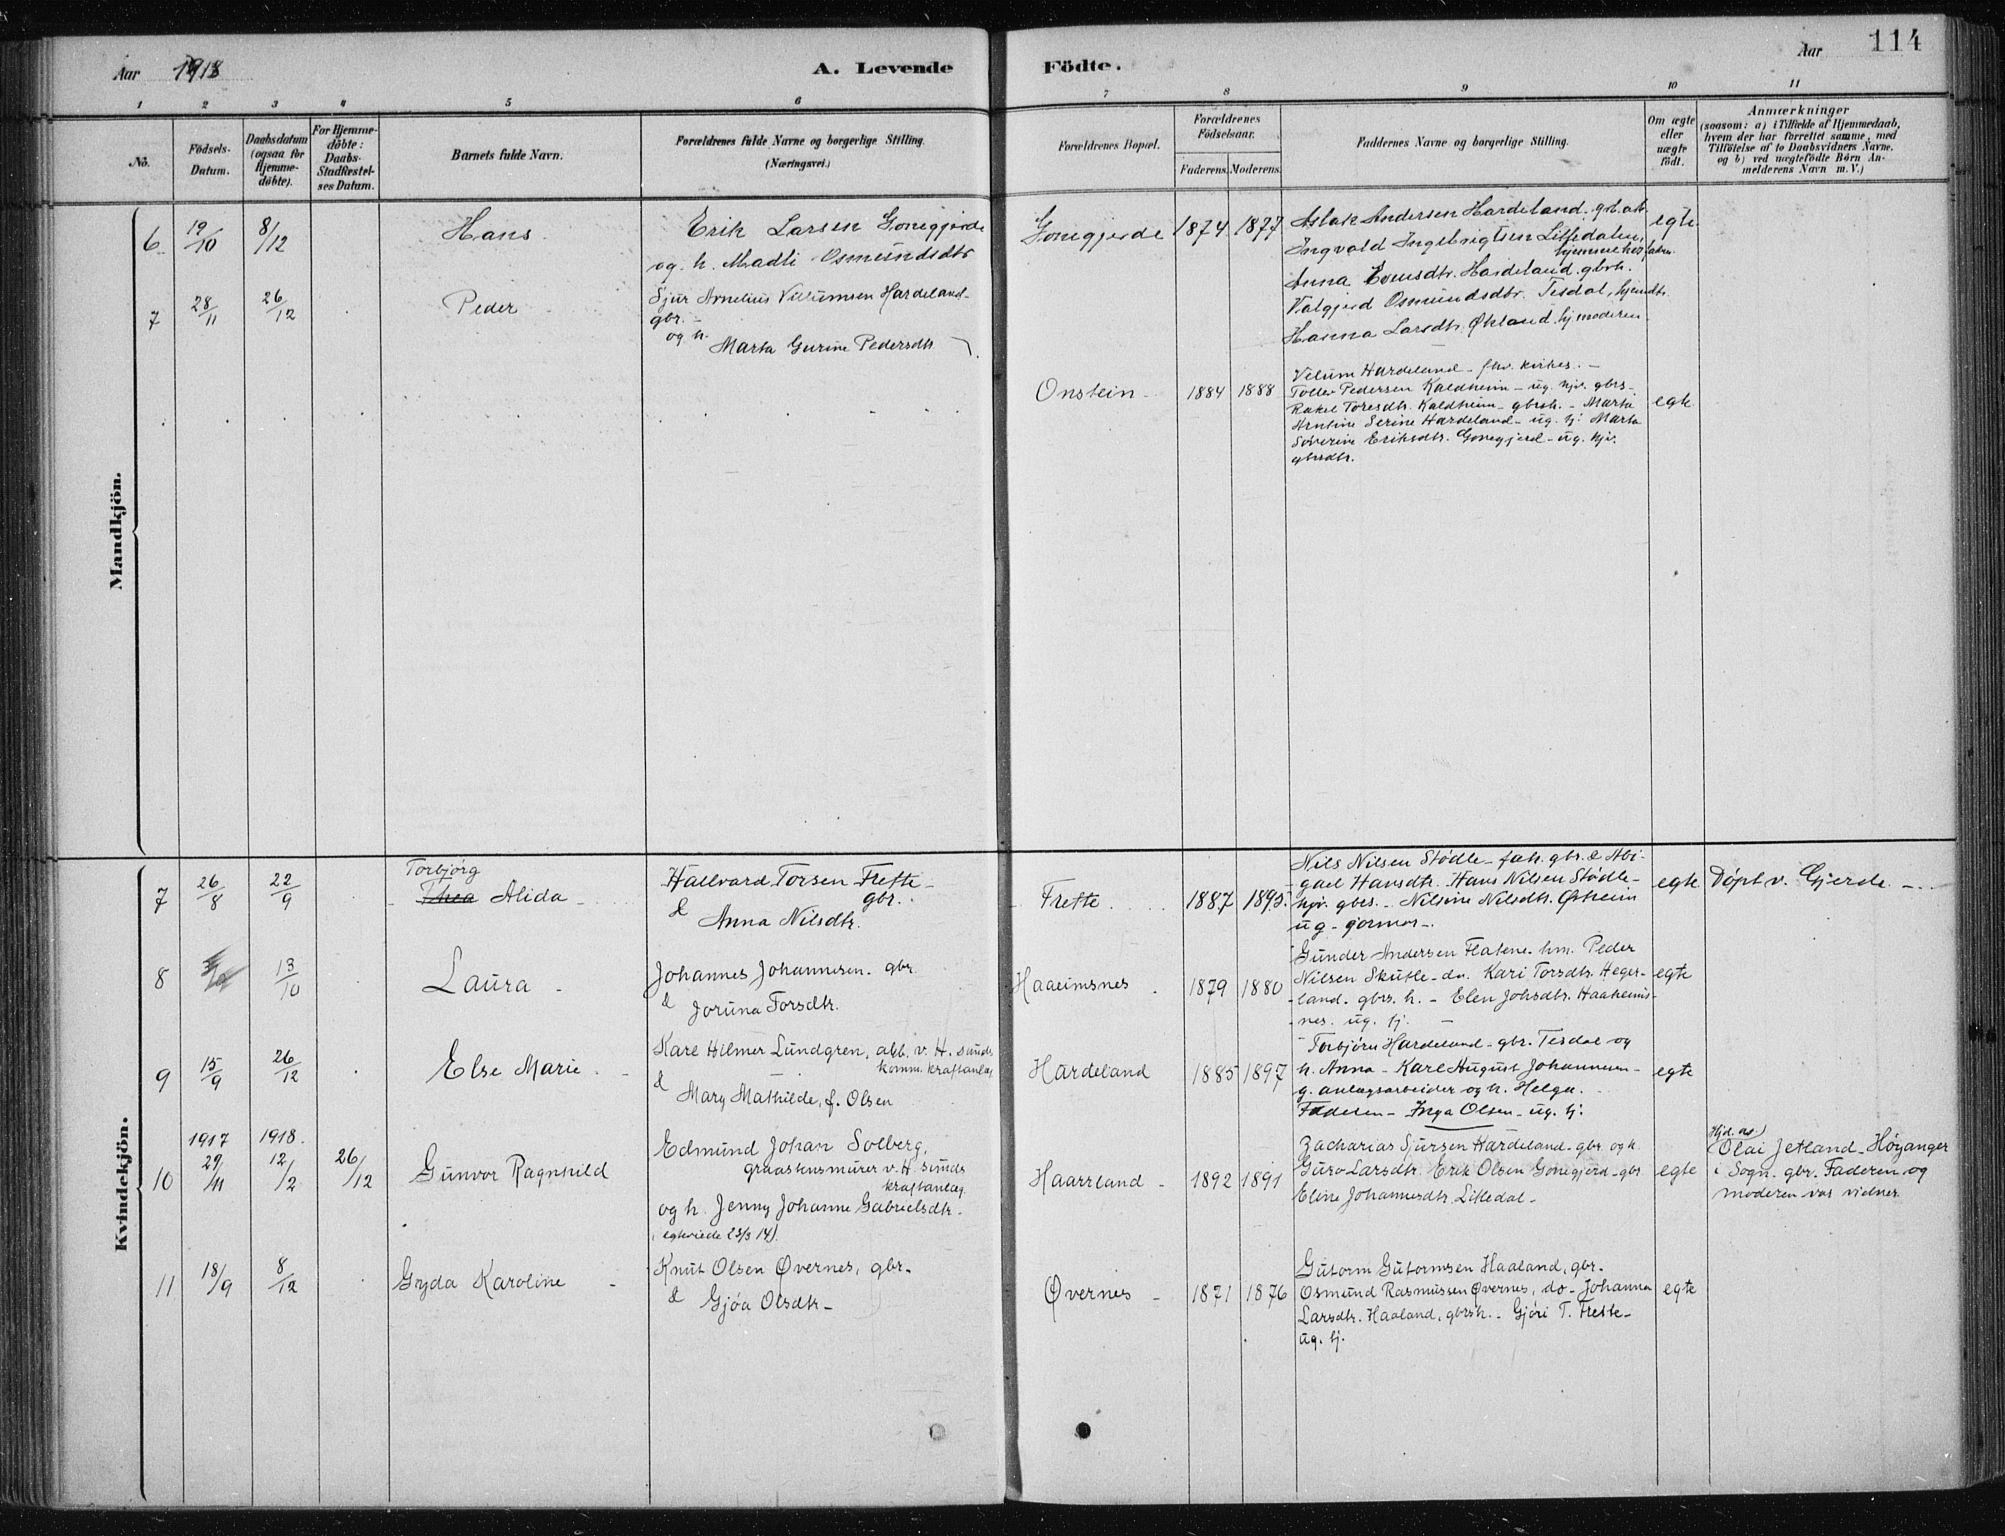 Aar 1918
A. Levende
Födte.
Aar
114
1 2 3 4 5 6 7 8 9 10 11
No.
Födsels-
Datum.
Daabsdatum
(ogsaa for
Hjemme-
döbte).
For Hjemme-
döbte:
Daabs-
Stadfæstel-
ses Datum.
Barnets fulde Navn.
Forældrenes fulde Navne og borgerlige Stilling.
(Næringsvei.)
Forældrenes Bopæl.
Forældrenes
Födselsaar.
Faderens. Moderens.
Faddernes Navne og borgerlige Stilling.
Om ægte
eller
uægte
födt.
Anmærkninger
(saasom: a) i Tilfælde af Hjemmedaab,
hvem der har forrettet samme, med
Tilföielse af to Daabsvidners Navne.
og b) ved uægtefödte Börn An-
melderens Navn m. V.)
Mandkjön.
6 19/10 8/12 Hans
Erik Larsen Gonegjerde
og h. Madli Osmundsdtr
Gonegjerde 1874 1877
Aslak Andersen Hardeland
Ingvald Ingebrigtsen Litledalen,
hjemme hos faderen
Anna Hardeland. gbrh.
Valgjerd Osmundsdtr. Tesdal,
Hanna Larsdtr. Økland. hj. moderen
egte
7 28/11 26/12 Peder
Sjur Arnelius Hardeland-
gbr. -
og h.
Marta Gurine Pedersdtr
Onstein 1884 1888
Velum Hardeland - fhv. kirkes. -
Tollev Pedersen Kaldheim - ug. hjv. gbrs -
Rakel Toresdtr. Kaldheim - gbrsh. - Marta
Arntine Serine Hardeland - ug. hj. Marta
Severine Eriksdtr. Gonegjerd - ug. hjv.
gbrsdtr.
egte
Kvindekjön.
7 26/8 22/9
Torbjörg
Thea Alida
Hallvard Torsen Frette -
gbr.
& Anna Nilsdtr.
Frette 1887 1895
Nils Nilsen Stødle - gbr. & Abi-
gael Hansdtr. Hans Nilsen Stødle -
hjv. gbrs. - Nilsine Nilsdtr. Østheim
ug. -
egte
Døpt v. Gjerde -
8 13/10 Laura
Johannes Johannesen. gbr.
& Joruna Torsdtr.
Haaeimsnes 1879 1880
Gunder Andersen Flatene. hm. Peder
Nilsen Skutle - do. Kari Torsdtr. Heger-
land. gbrs. h. - Elen Johsdtr. Haaheims-
nes. ug. hj.
egte
9 15/9 26/12 Else Marie
Karl Hilmer Lundgren, arb. v. H. sunds
komm. kraftanlæg
& Mary Mathilde, f. Olsen
Hardeland 1885 1897
Torbjørn Hardeland - gbr. Tesdal og
h. Anna - Karl August Johannesen -
g. anlægsarbeider og h. Helga.
Faderen - Inga Olsen - ug. hj.
egte
10 1917 29/11 1918. 12/2 26/12 Gunvor Ragnhild
Edmund Johan Solberg,
graastensmurer v. H. sunds
kraftanlæg
og h. Jenny Johanne Gabrielsdtr.
(egteviede 23/3 14).
Haarrland 1892 1891
Zacharias Sjursen Hardeland. gbr. og h.
Guro Larsdtr. Erik Olsen Gonegjerd - gbr
Eline Johannesdtr. Litledal -
egte
Hjd. av
Olai Jetland - Höyanger
i Sogn. gbr. Faderen og
moderen var vidner.
11 18/9 8/12 Gyda Karoline
Knut Olsen Øvernes, gbr.
& Gjöa Olsdtr -
Øvernes 1871 1876
Gutorm Gutormsen Haaland, gbr.
Osmund Rasmussen Øvernes, do - Johanna
Larsdtr. Haaland, gbrsh. - Gjöri T. Frette -
ug. hj.
egte